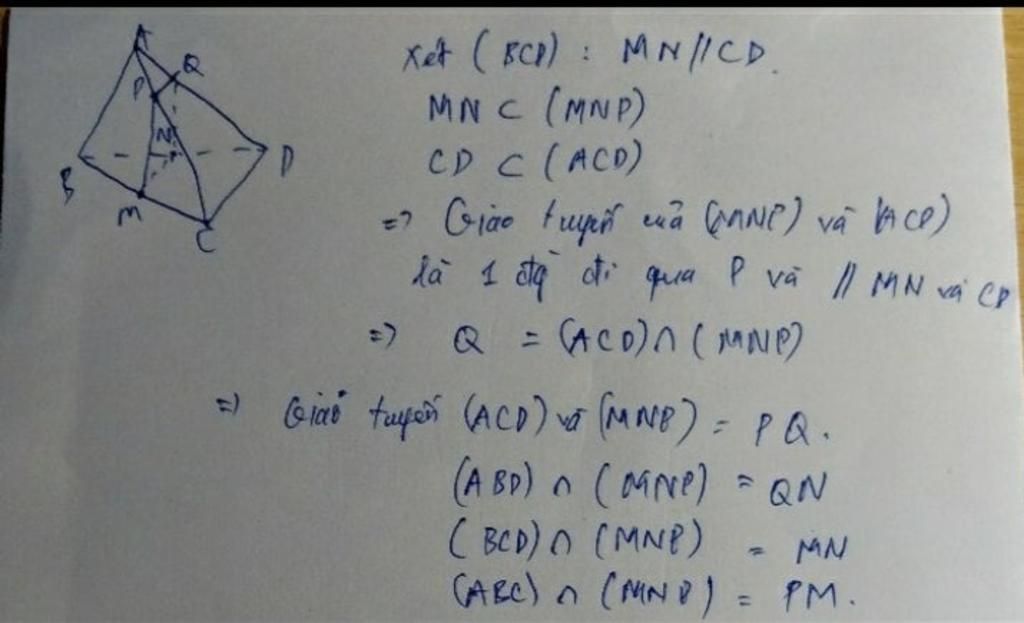 A
Q
P
N
B
D
M
C
Xét (BCD) : MN//CD.
MN ⊂ (MNP)
CD ⊂ (ACD)
=> Giao tuyến của (MNP) và (ACD)
là 1 đtg đi qua P và // MN và CD
=> Q = (ACD) ∩ (MNP)
=> Giao tuyến (ACD) và (MNP) = PQ.
(ABD) ∩ (MNP) = QN
(BCD) ∩ (MNP) = MN
(ABC) ∩ (MNP) = PM.